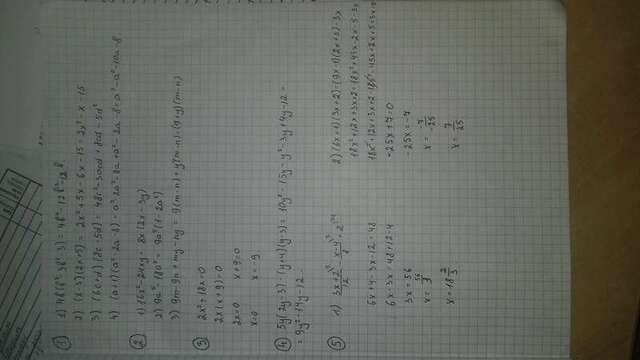 ① 1) 4b(b³-3b²-3) = 4b⁴-12b³-12b
2) (x-3)(2x+5) = 2x²+5x-6x-15 = 2x²-x-15
3) (6c+d)(8c-5d) = 48c²-30cd+8cd-5d²
4) (a+1)(a²-2a-8) = a³-2a²-8a+a²-2a-8 = a³-a²-10a-8
② 1) 16x²-24xy = 8x(2x-3y)
2) 9a⁵-18a⁷ = 9a⁵(1-2a²)
3) 9m-9n+my-ny = 9(m-n)+y(m-n) = (9+y)(m-n)
③ 2x²+18x=0
2x(x+9)=0
2x=0 x+9=0
x=0 x=-9
④ 5y(2y-3)-(y+4)(y-3) = 10y²-15y-y²-3y+4y-12 =
= 9y²-14y-12
⑤ 1) (3x+2)/12 - (x-4)/8 = 2
6x+4-3x-12=48
6x-3x=48+12-4
3x=56
x=56/3
x=18 2/3
2) (6x+1)(3x+2)-(9x-1)(2x+5)=3x
18x²+12x+3x+2-18x²+45x-2x-5=3x
18x²+12x+3x+2-18x²-45x+2x+5=3x
-25x+7=0
-25x=-7
x=-7/-25
x=7/25